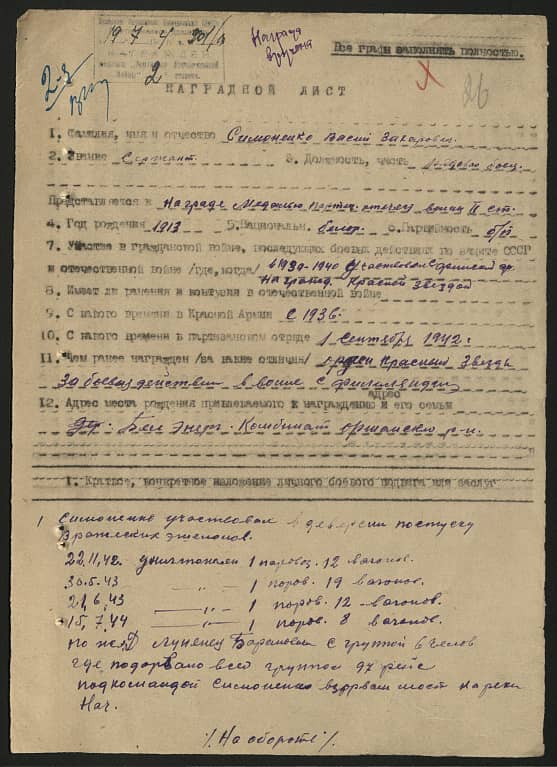 19 7 4 301/н
Награда
вручена
Все графы заполнять полностью.
23
2
26
НАГРАДНОЙ ЛИСТ
1. Фамилия, имя и отчество Симоненко Васий Захарович
2. Звание Сержант 3. Должность, часть Рядовой боец
Представляется к Награде Медалью партиз. отечеств войны II ст.
4. Год рождения 1913 5. Национальн. белор. 6. Партийность б/п
7. Участие в гражданской войне, последующих боевых действиях по защите СССР
и отечественной войне /где, когда/ в 1939-1940 Участвовал с финской
Награжд. Красной Звездой
8. Имеет ли ранения и контузии в отечественной войне
9. С какого времени в Красной Армии с 1936.
10. С какого времени в партизанском отряде 1 Сентября 1942.
11. Чем ранее награжден /за какие отличия/ орден Красной Звезды
За боевые действия в войне с финляндией
адрес
12. Адрес места рождения привлекаемого к награждению и его семьи
дер. Бел Энерг. Комбинат оршанского р-н.
I. Краткое, конкретное изложение личного боевого подвига или заслуг
1 Симоненко участвовал в диверсии по спуску
Вражеских эшелонов.
22.11.42. уничтожен 1 паровоз. 12 вагонов.
30.5.43 —„— 1 поров. 19 вагонов.
21.6.43 —„— 1 поров. 12 вагонов.
15.7.44 —„— 1 поров. 8 вагонов.
по ж.д Лунинец Баранович с группой 8 челов
где подорвало всей группой 97 рейс
под командой Симоненко взорван мост на реки
Нач.
/. На обороте /.